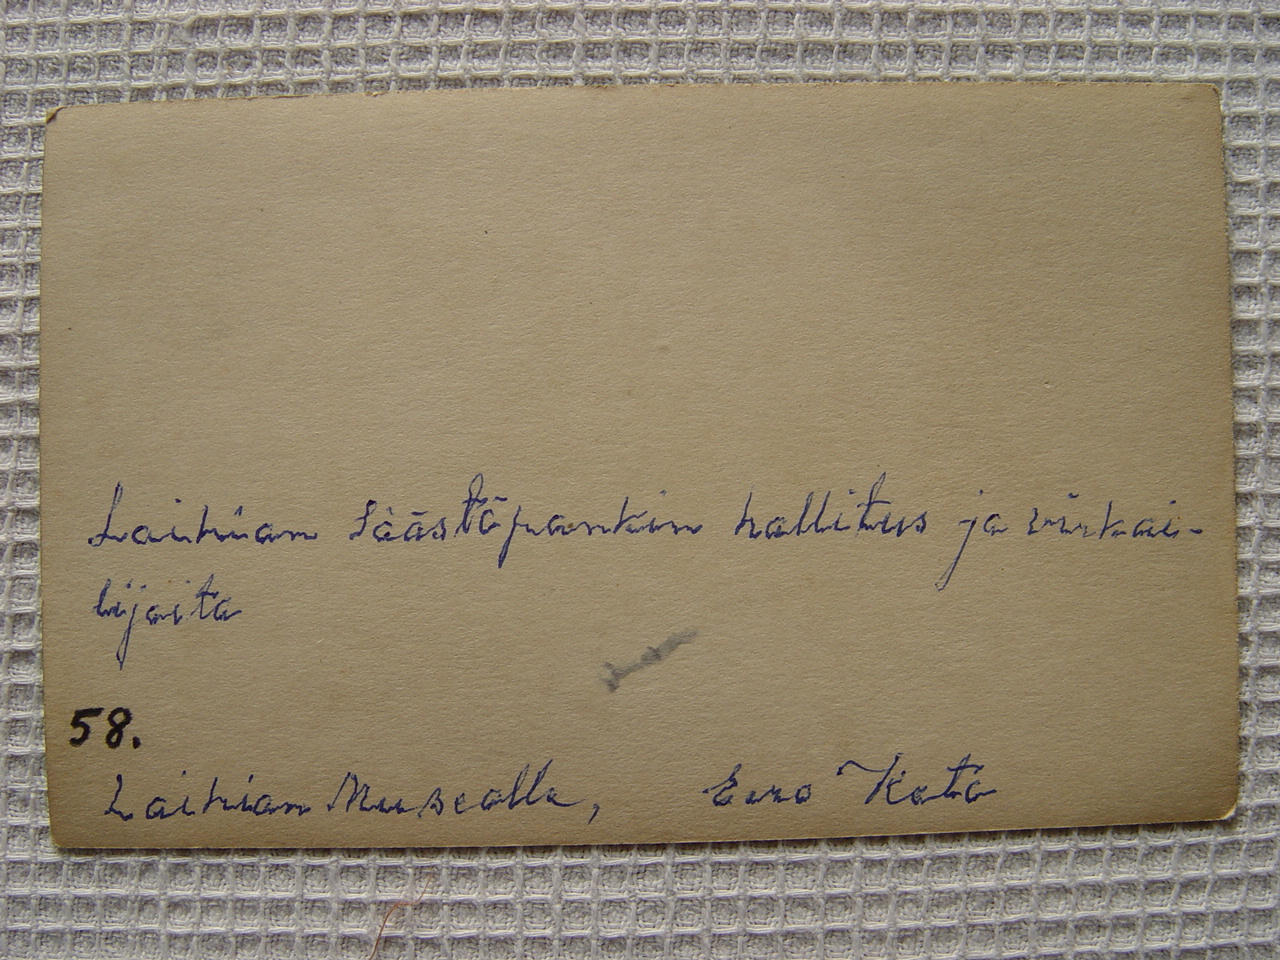 Laihian Säästöpankin hallitus ja virkai-
lijoita
58.
Laihian Museolle, Eero Keto